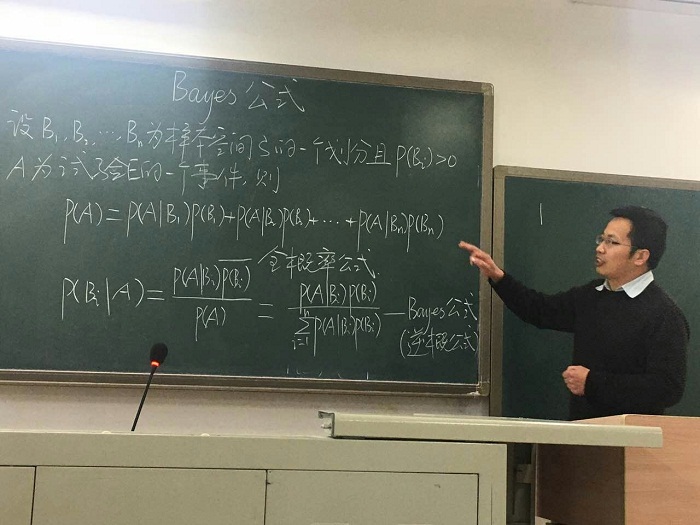 Bayes 公式
设 B₁, B₂, …, Bₙ 为样本空间 S 的一个划分且 P(Bᵢ)>0
A 为试验E的一个事件,则
P(A) = P(A|B₁)P(B₁)+P(A|B₂)P(B₂)+…+P(A|Bₙ)P(Bₙ)
全概率公式.
P(Bᵢ|A) = P(A|Bᵢ)P(Bᵢ) / P(A) = P(A|Bᵢ)P(Bᵢ) / ∑ⁿᵢ₌₁ P(A|Bᵢ)P(Bᵢ) — Bayes公式
(逆概公式)